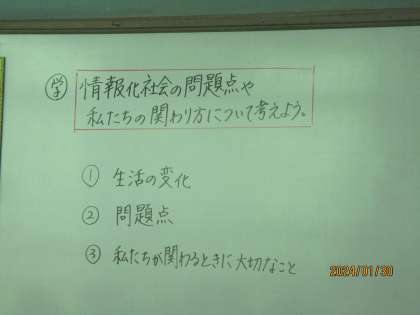 学 情報化社会の問題点や
私たちの関わり方について考えよう。
① 生活の変化
② 問題点
③ 私たちが関わるときに大切なこと
2024/01/30